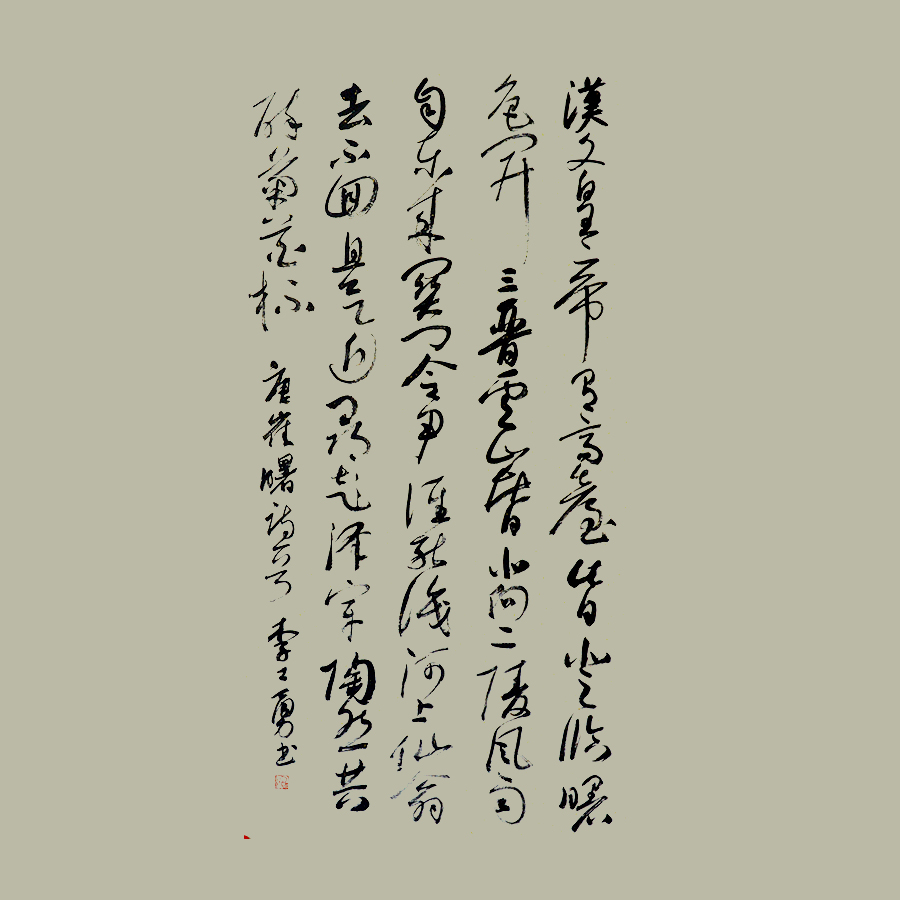 漢文皇帝有高臺此日登臨曙
色開三晉雲山皆北向二陵風雨
自東來關門令尹誰能識河上仙翁
去不回且欲近尋彭澤宰陶然共
醉菊花杯 唐崔曙詩一首 李勇书